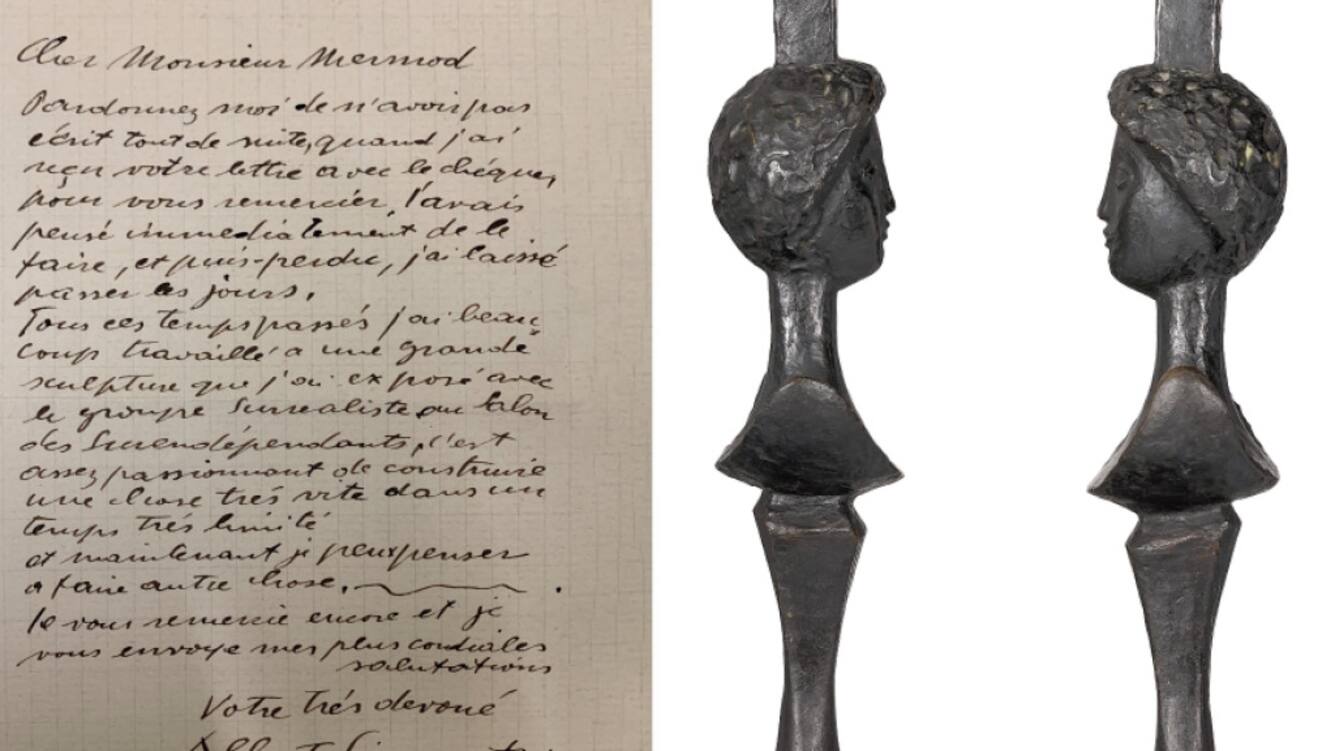 Cher Monsieur Mermod
Pardonnez moi de n'avoir pas
écrit tout de suite, quand j'ai
reçu votre lettre avec le chéque,
pour vous remercier, l'avais
pensé immediatement de le
faire, et puis-perdu, j'ai laissé
passer les jours.
Tous ces temps passés j'ai beau
coup travaillé a une grande
sculpture que j'ai exposé avec
le groupe Surrealiste au Salon
des Surendépendants, c'est
assez passionnant de construire
une chose trés vite dans un
temps trés limité
et maintenant je peux penser
a faire autre chose.
Je vous remercie encore et je
vous envoye mes plus cordiales
salutations
Votre trés devoué